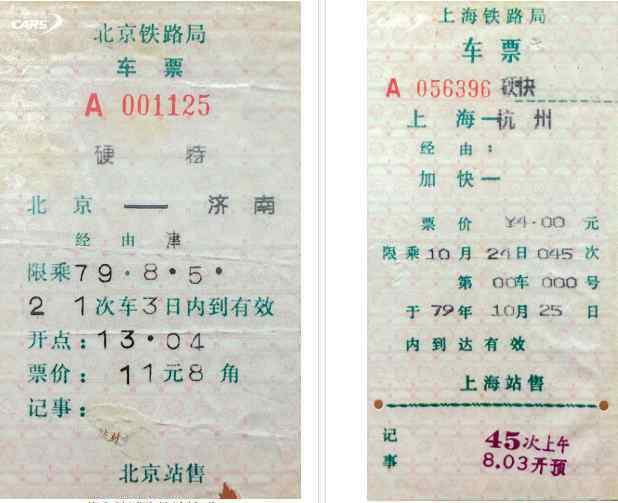 CARS
北京铁路局
车票
A 001125
硬 特
北京 — 济南
经由 津
限乘79·8·5·
21次车3日内到有效
开点：13·04
票价：11元8角
记事：
北京站售
上海铁路局
车票
A 056396 硬快
上海—杭州
经由：
加快—
票价 ¥4·00 元
限乘10月24日045次
第00车000号
于79年10月25日
内到达有效
上海站售
记事
45次上午
8.03开预